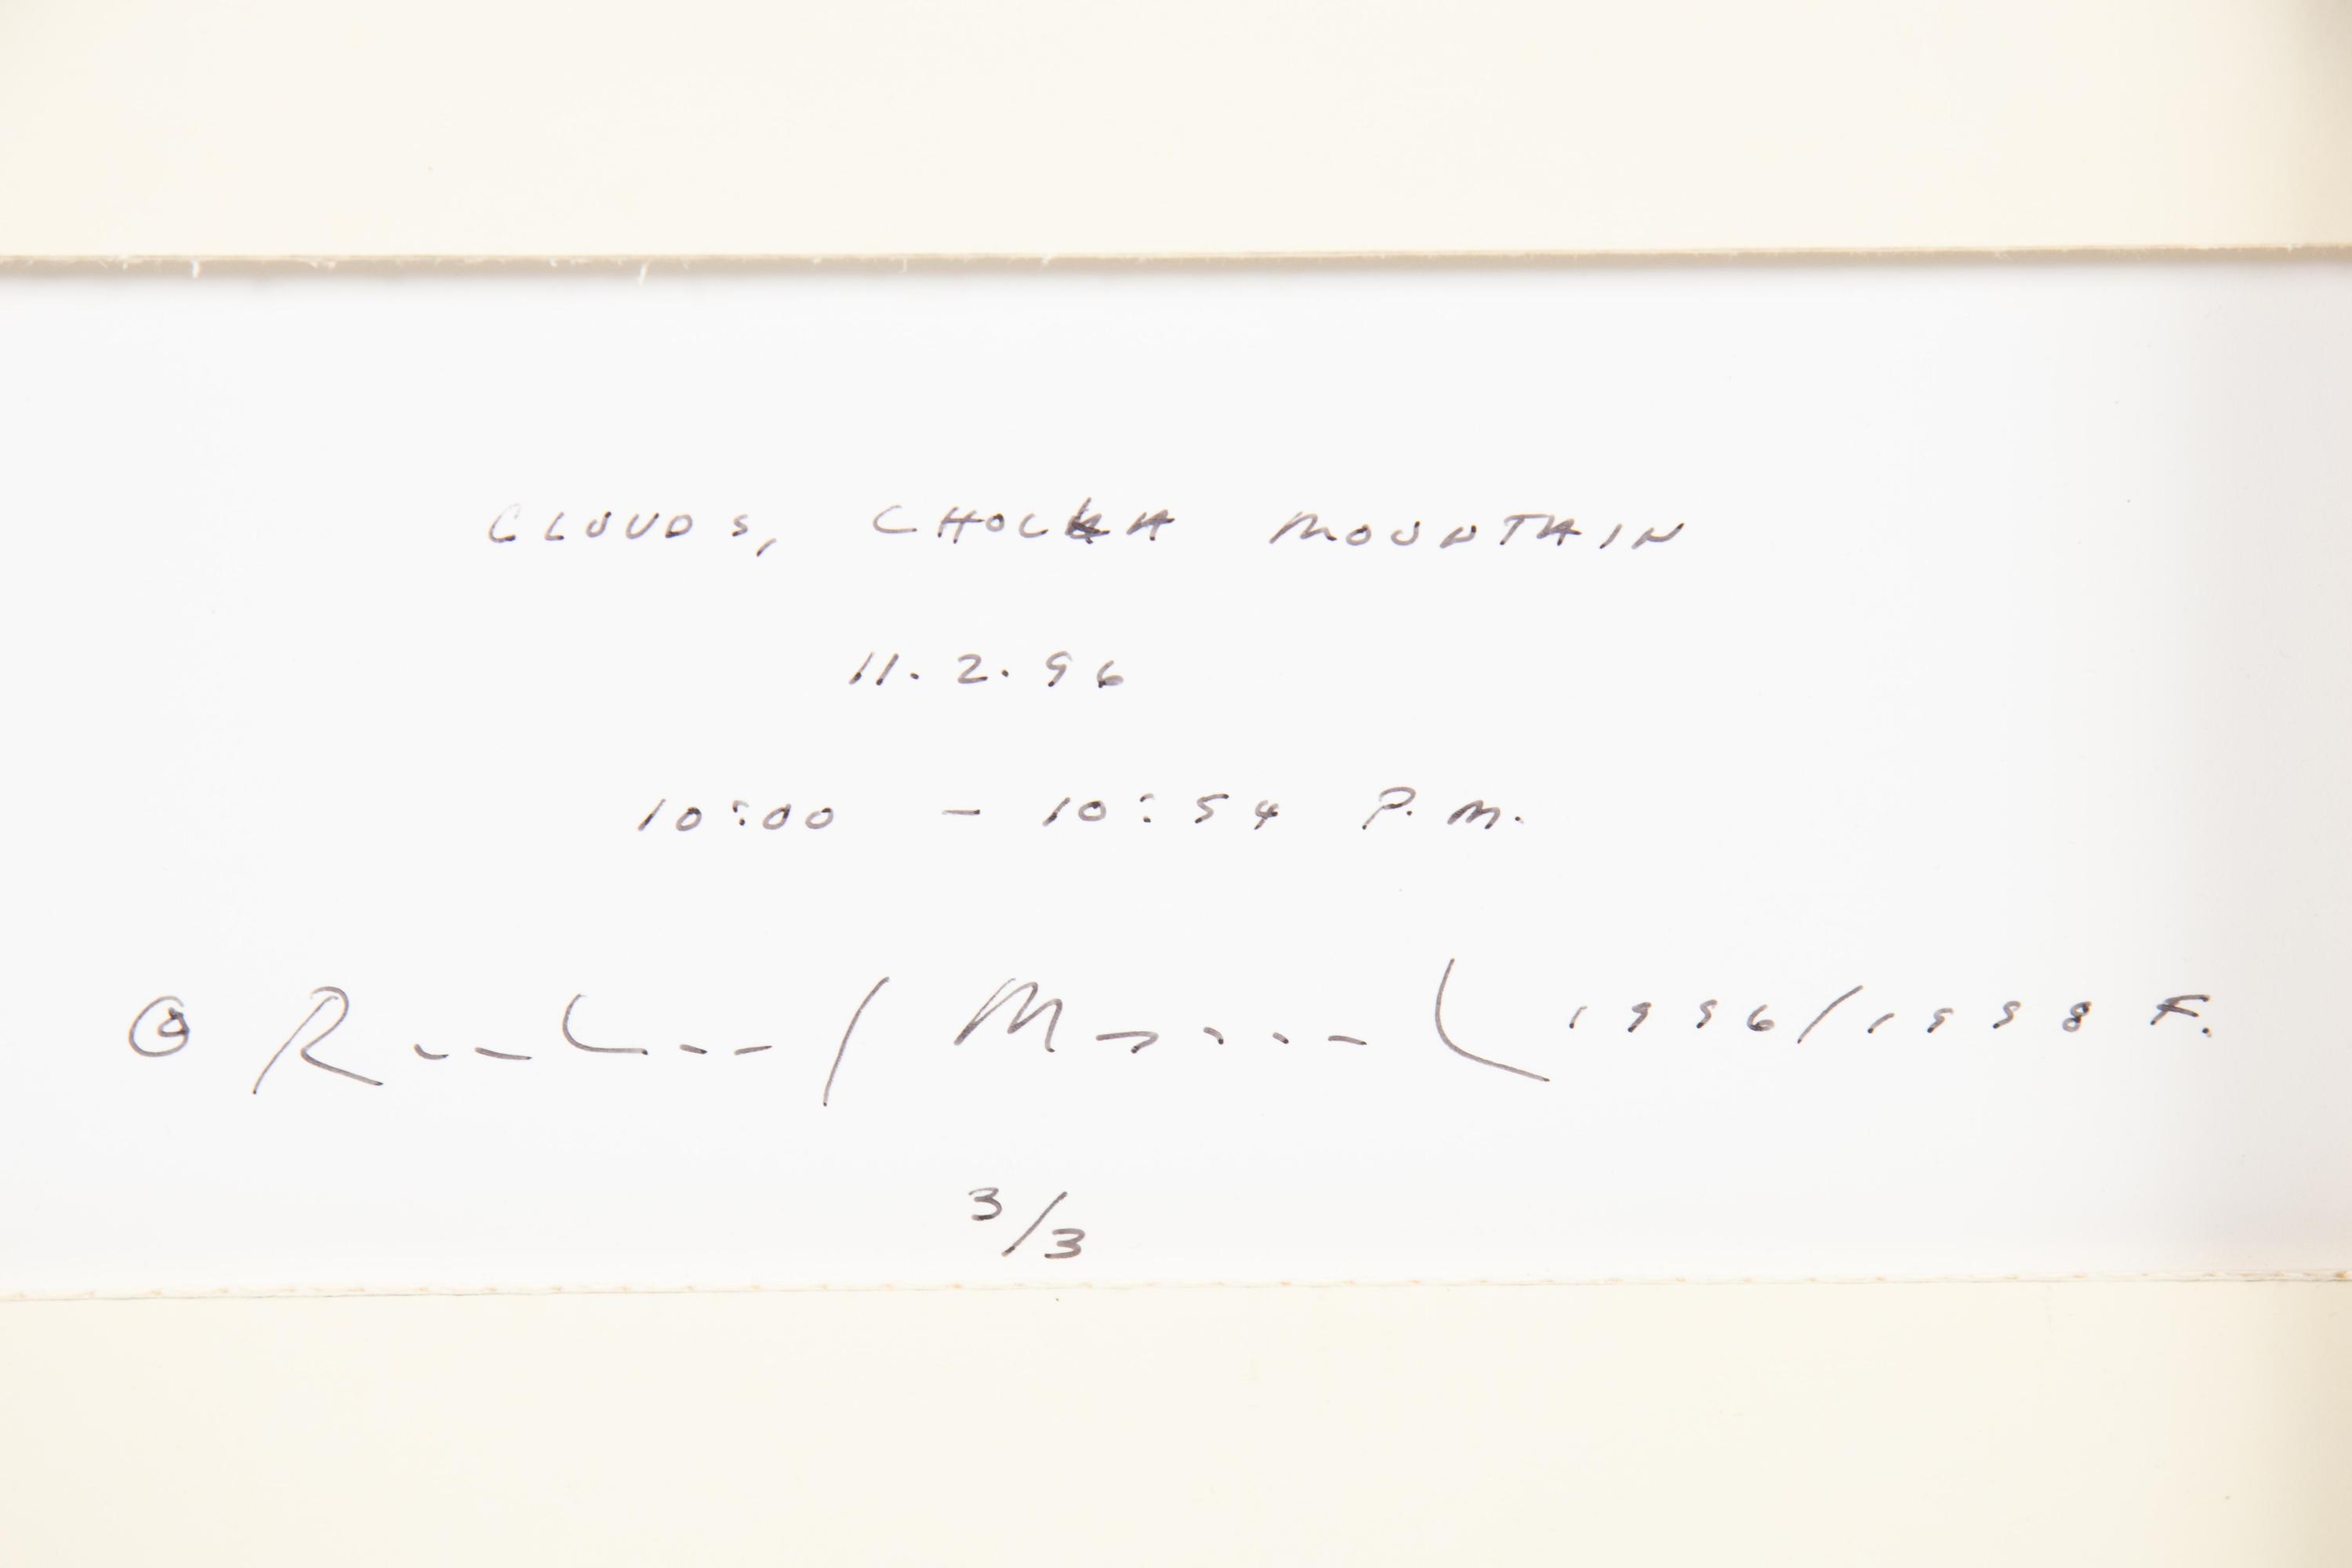 CLOUDS, CHOLLA MOUNTAIN
11.2.96
10:00 - 10:54 P.M.
© 1996/1998 F.
3/3